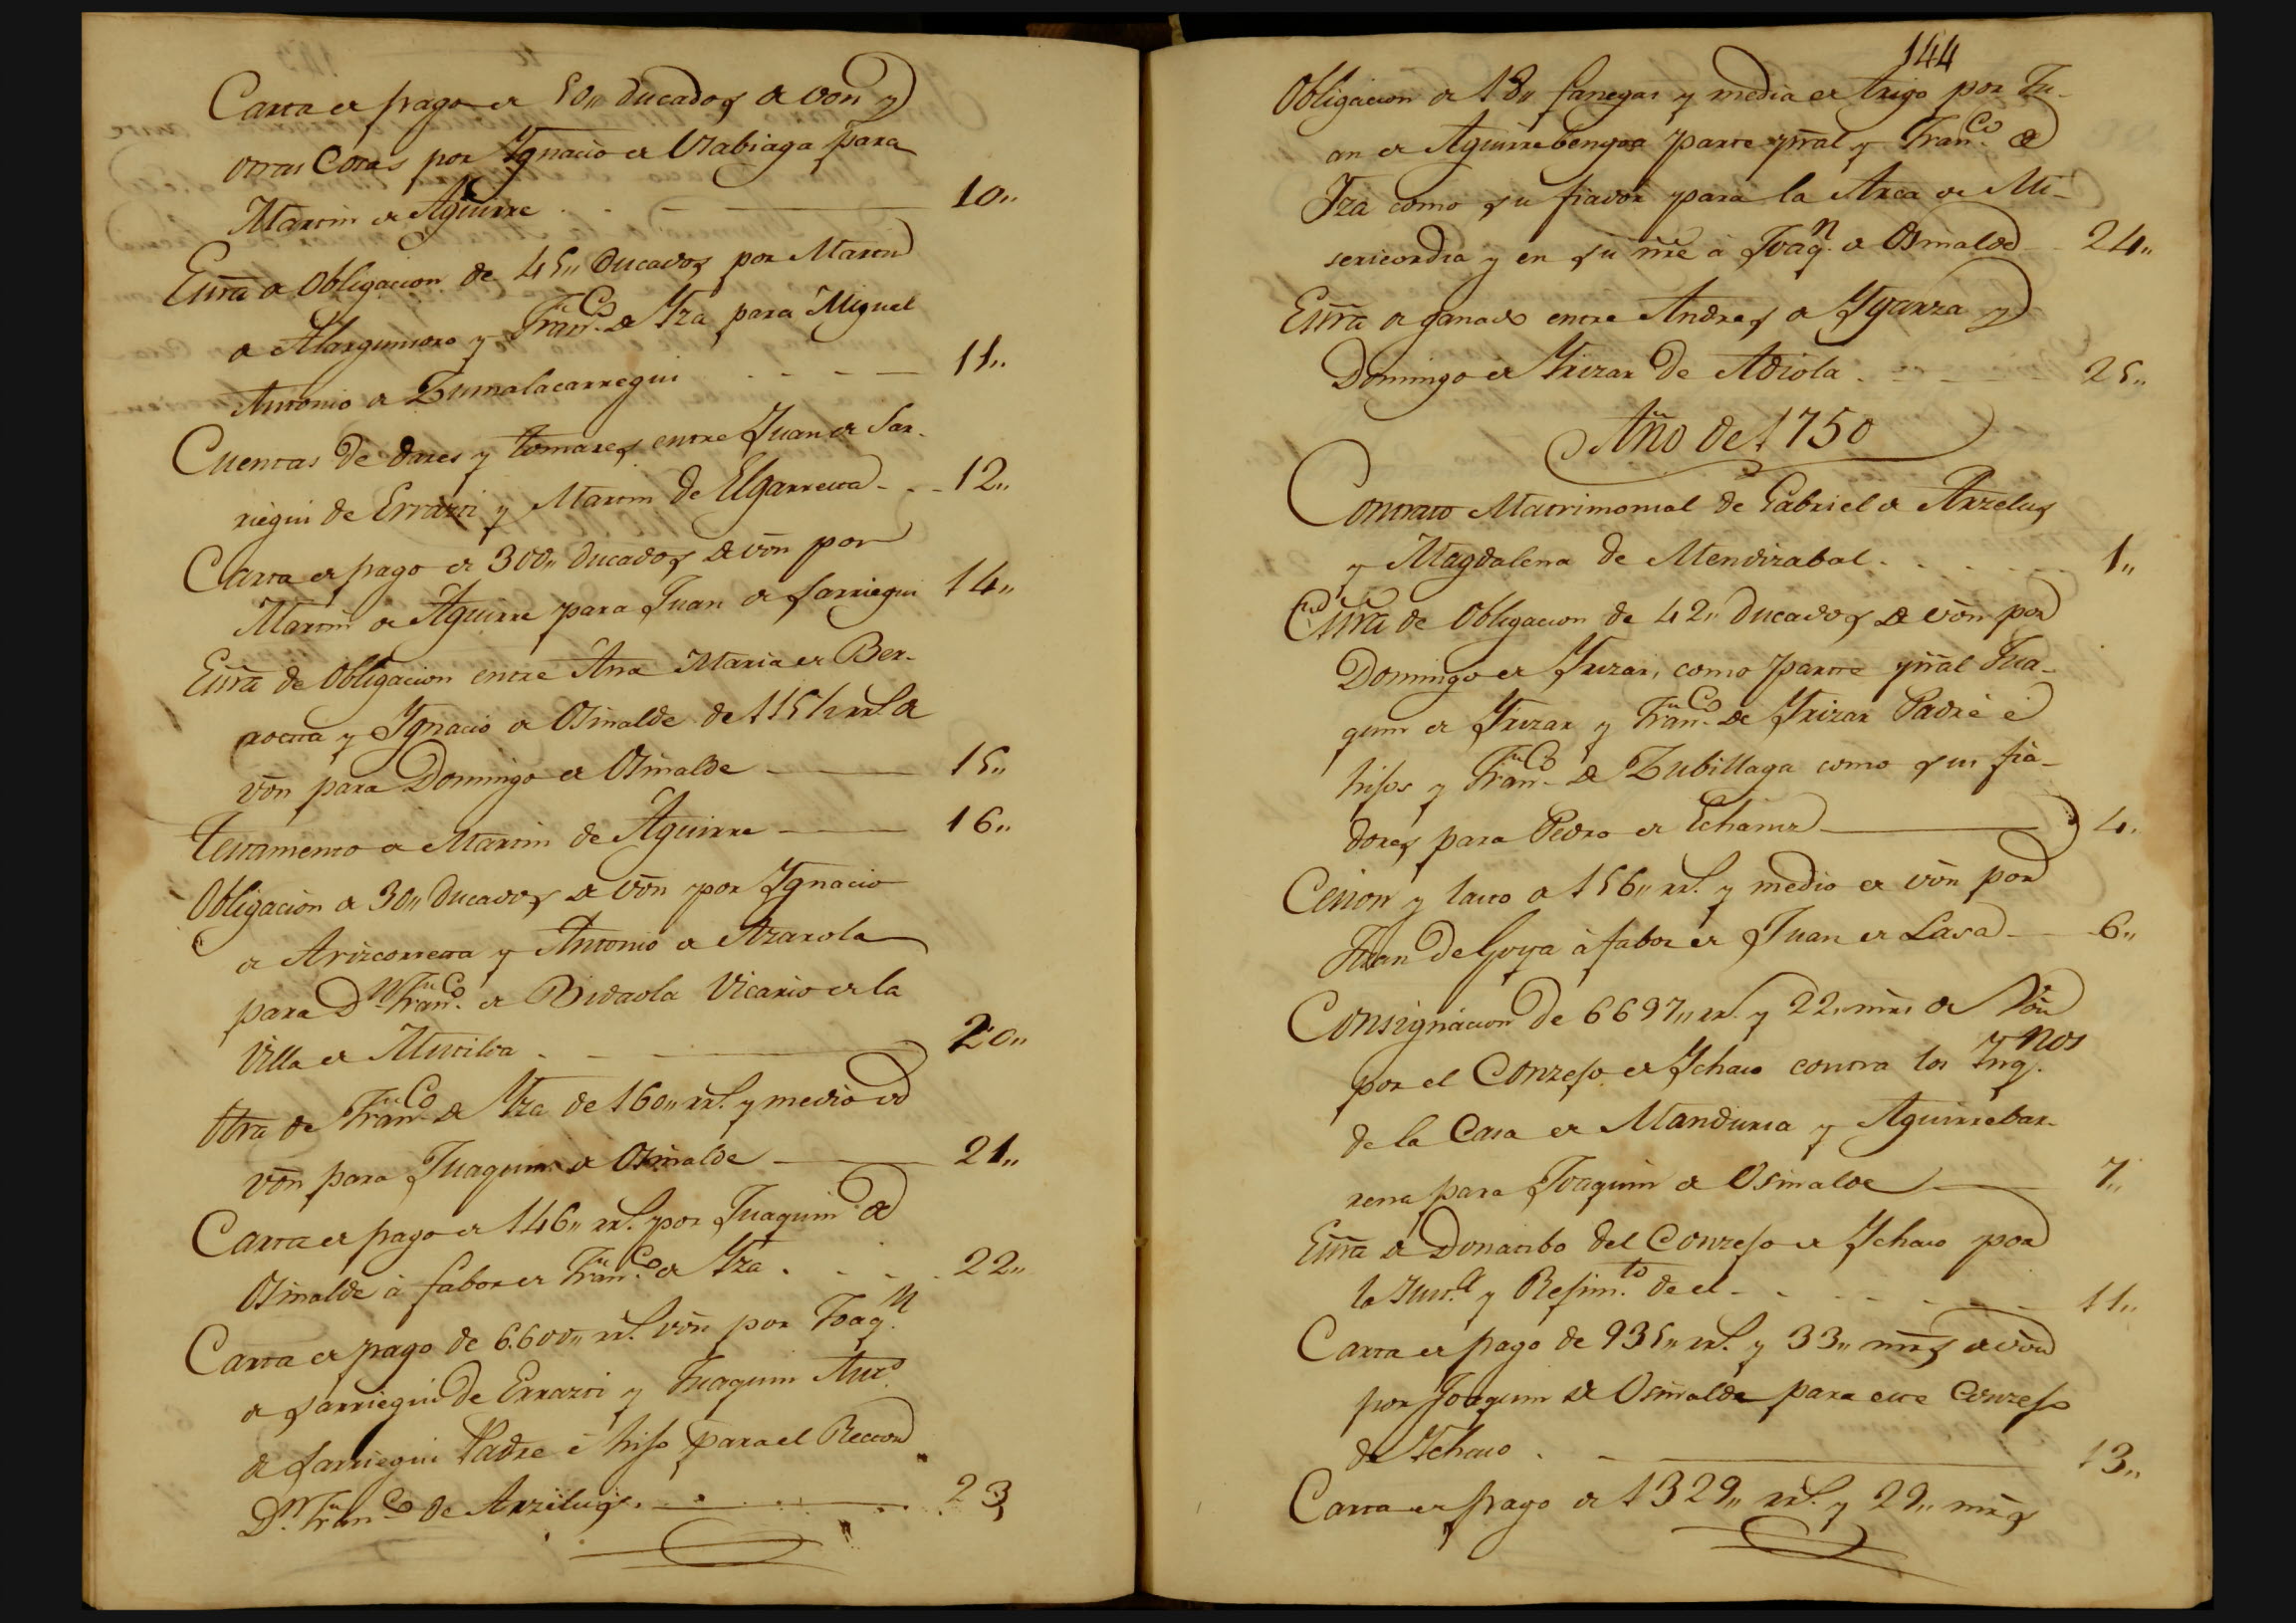 Carta de pago de 50,, ducados de von y
otras Cosas por Ygnacio de Urabiaga para
Martin de Aguirre 10,,
Essra de Obligacion de 45,, ducados por Martin
de Alargunsoro y Franco de Yza para Miguel
Antonio de Zumalacarregui 11,,
Cuentas de dares y tomares entre Juan de Sar-
riegui de Errazti y Martin de Elgarresta 12,,
Carta de pago de 300,, ducados de von por
Martin de Aguirre para Juan de Sarriegui 14,,
Essra de Obligacion entre Ana Maria de Ber-
rostia y Ygnacio de Osinalde de 115 1/2 rrs. de
von para Domingo de Osinalde 15,,
Testamento de Martin de Aguirre 16,,
Obligacion de 30,, ducados de von por Ygnacio
de Arizcorreta y Antonio de Azarola
para Dn Franco de Bidaola Vicario de la
Villa de Mutiloa 20,,
Otra de Franco de Yza de 160,, rrs. y medio de
von para Juaquin de Osinalde 21,,
Carta de pago de 146,, rrs. por Juaquin de
Osinalde à fabor de Franco de Yza 22,,
Carta de pago de 6.600,, rrs. von por Joaqn
de Sarriegui de Errazti y Juaquin Anto
de Sarriegui Padre è hijo para el Rector
Dn Franco de Arzelus 23,
144
Obligacion de 18,, fanegas y media de trigo por Ju-
an de Aguirrebengoa parte prral y Franco de
Yza como su fiador para la Arca de Mi-
sericordia y en su nre à Joaqn de Osinalde 24,,
Essra de ganado entre Andres de Ygarza y
Domingo de Yrizar de Adiola 25,,
Año de 1750
Contrato Matrimonial de Gabriel de Arzelus
y Magdalena de Mendizabal 1,,
Essra de Obligacion de 42,, ducados de von por
Domingo de Yrizar, como parte prral Jua-
quin de Yrizar y Franco de Yrizar Padre è
hijos y Franco de Zubillaga como sus fia-
dores para Pedro de Echaniz 4,,
Cesion y lasto de 156,, rrs. y medio de von por
Juan de Goya à fabor de Juan de Lasa 6,,
Consignacion de 6697,, rrs. y 22,, mrs. de Von
por el Conzejo de Ychaso contra los Ynqnos
de la Casa de Manduria y Aguirrebar-
rena para Joaquin de Osinalde 7,,
Essra de Donatibo del Conzejo de Ychaso por
la Justa y Rejimto de el 11,,
Carta de pago de 935,, rrs. y 33,, mrs de von
por Joaquin de Osinalde para este Conzejo
de Ychaso 13,,
Carta de pago de 1329,, rrs. y 29,, mrs